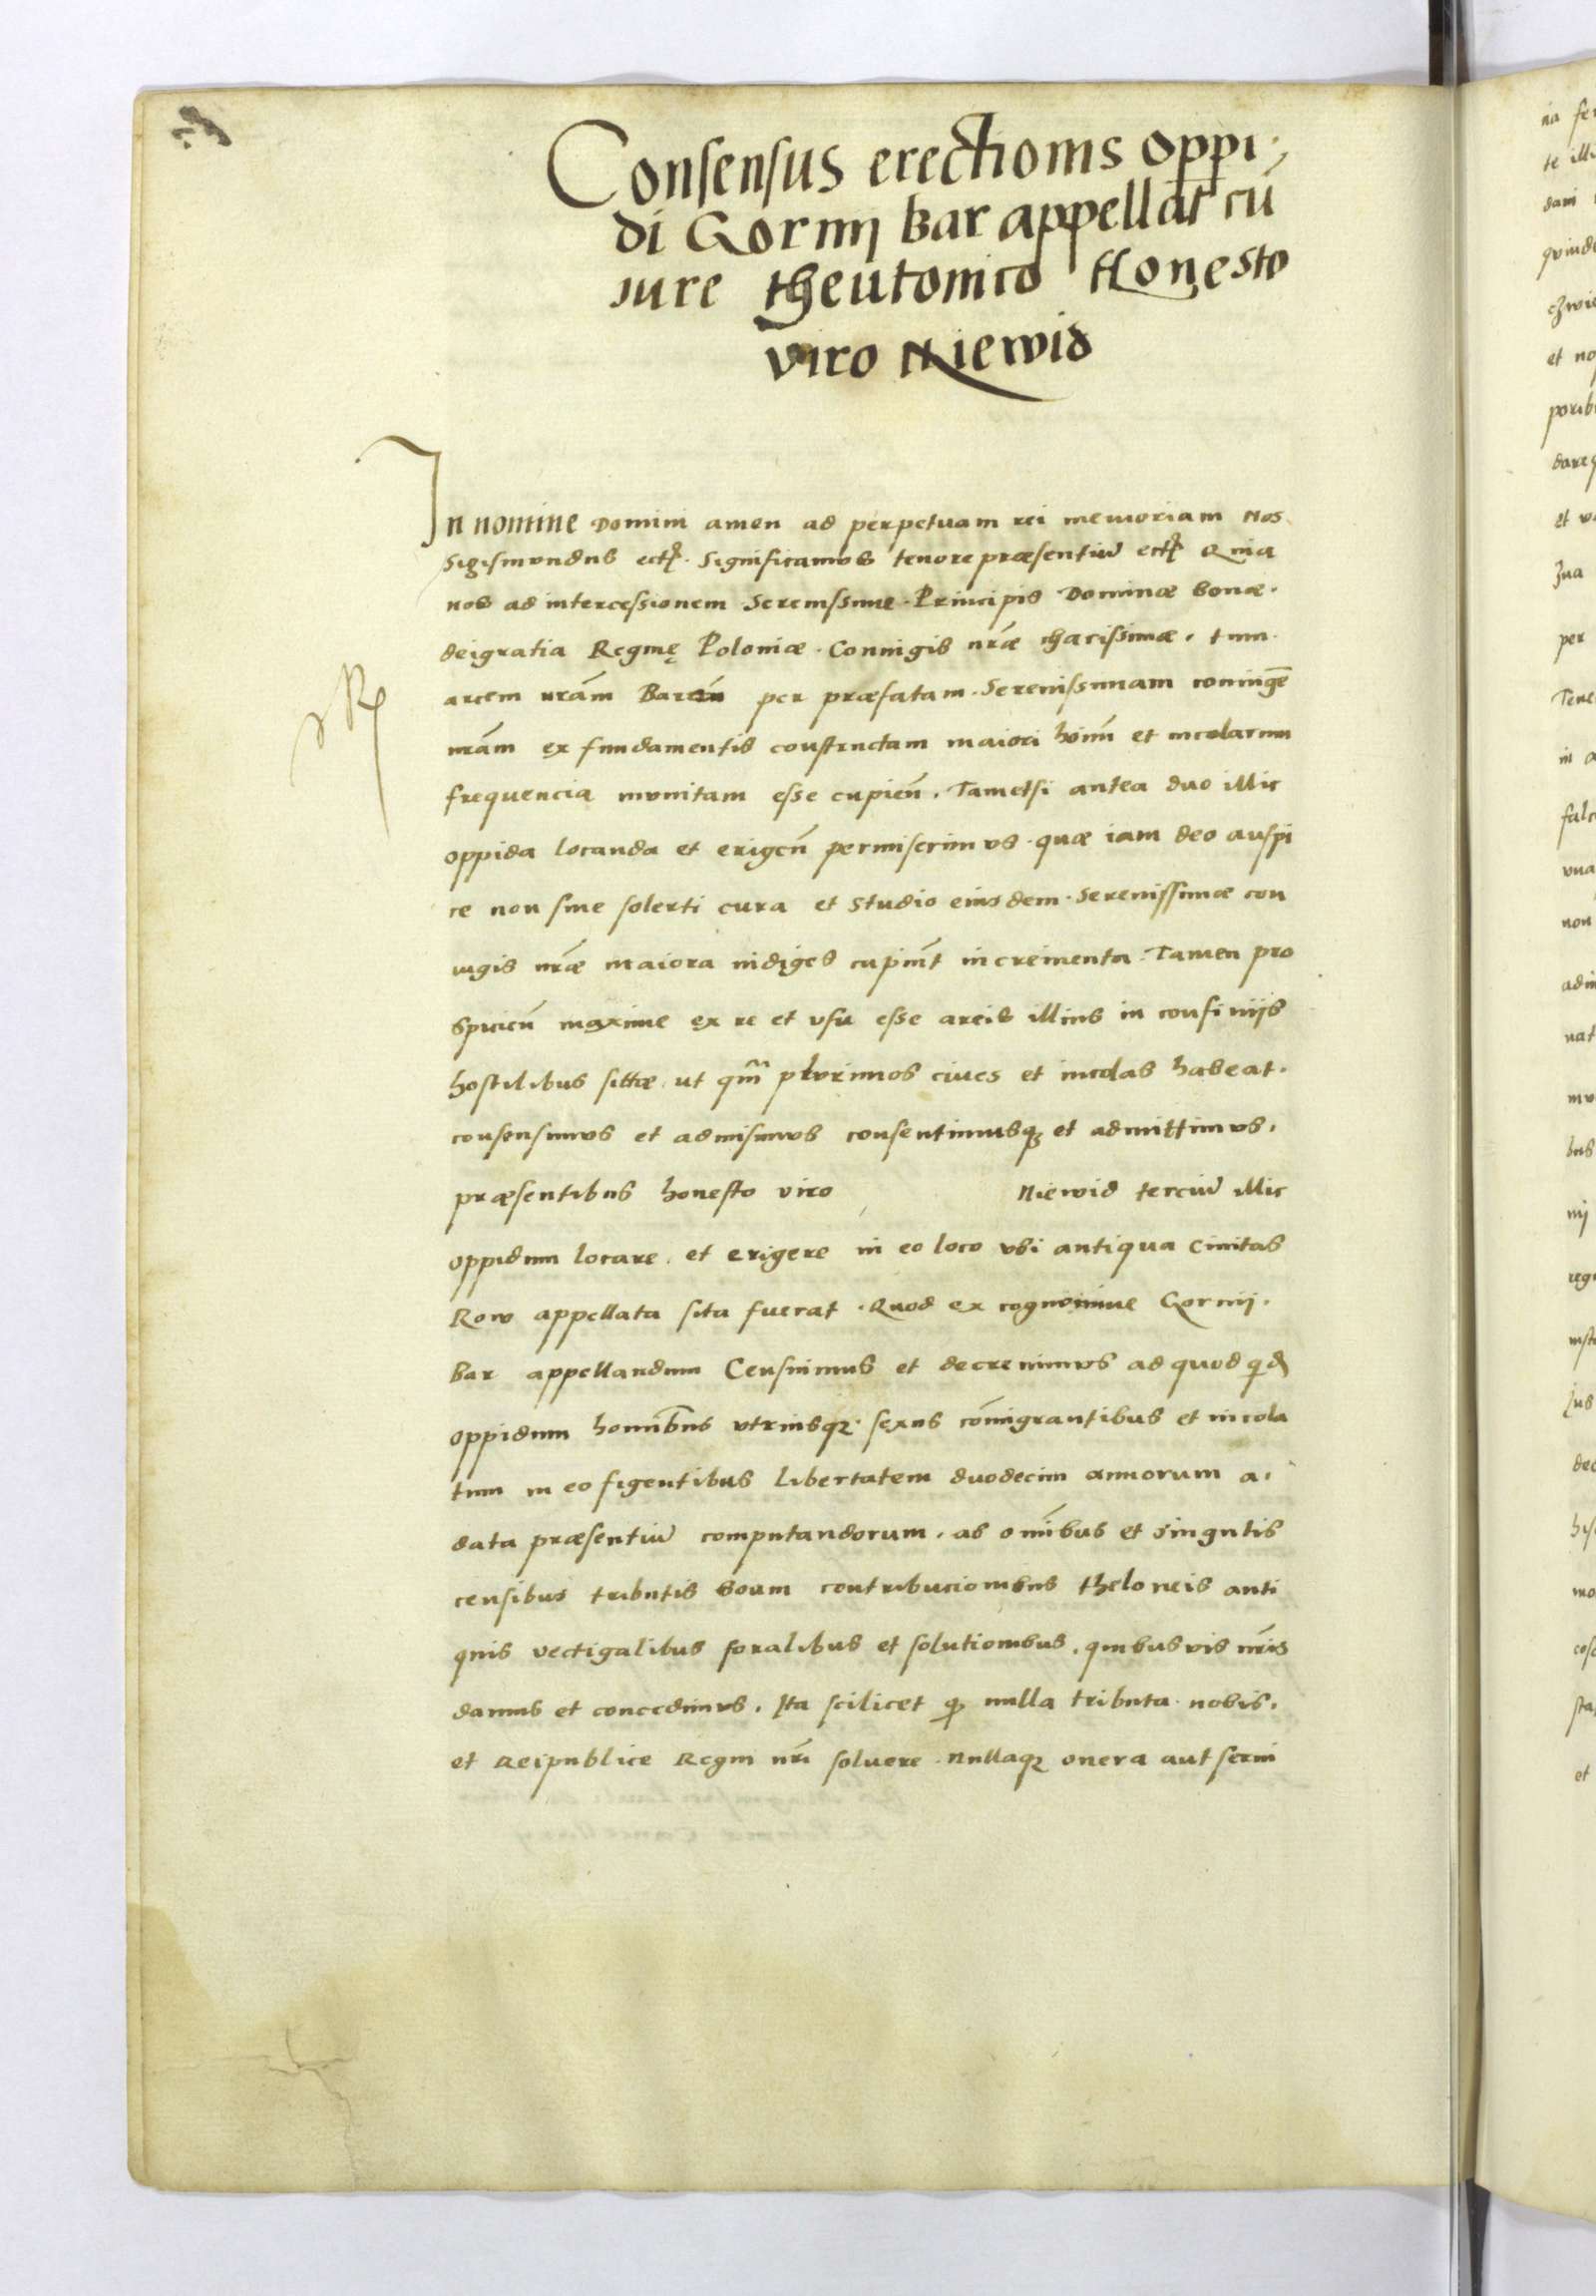 Consensus erectionis oppi-
di Gornij Bar appellat cū
iure theutonico Honesto
viro Niewid
In nomine Domini amen ad perpetuam rei memoriam Nos
Sigismundus ectꝫ. Significamus tenore præsentiū ectꝫ Quia
nos ad intercessionem Serenissime. Principis Dominæ bonæ.
deigratia Reginę Poloniæ. Coniugis nrǣ charissimæ. tum.
arcem nrām Barēn per præfatam. Serenissimam coniugē
nrām ex fundamentis constructam maiori hoīm et incolarum
frequencia munitam esse cupień. Tametsi antea duo illic
oppida locanda et erigeñ permiserimus. quæ iam deo auspi
ce non sine solerti cura et studio eiusdem. Serenissimæ con
iugis nrǣ maiora indiges capiūt incrementa. Tamen pro
spicień maxime ex re et usu esse arcis illius in confinijs
hostilibus sittæ ut qm̄ plurimos ciues et incolas habeat.
consensimus et admisimus consentimusqꝫ et admittimus.
præsentibus honesto viro Niewid terciū illic
oppidum locare. et erigere in eo loco ubi antiqua Ciuitas
Row appellata sita fuerat. Quod ex cognomine Gornij.
bar appellandum Censuimus et decreuimus ad quod qd
oppidum homibus utriusqꝫ. sexus cōmigrantibus et incola
tum in eo figentibus libertatem duodecim annorum a.
data præsentiū computandorum. ab omībus et singulis
censibus tributis boum contribucionibus theloneis anti
quis vectigalibus foralibus et solutionibus. quibusvis nrīs
damus et concedimus. Ita scilicet ꝙ nulla tributa nobis.
et Reipublice Regni nrī soluere. nullaqꝫ onera aut serui